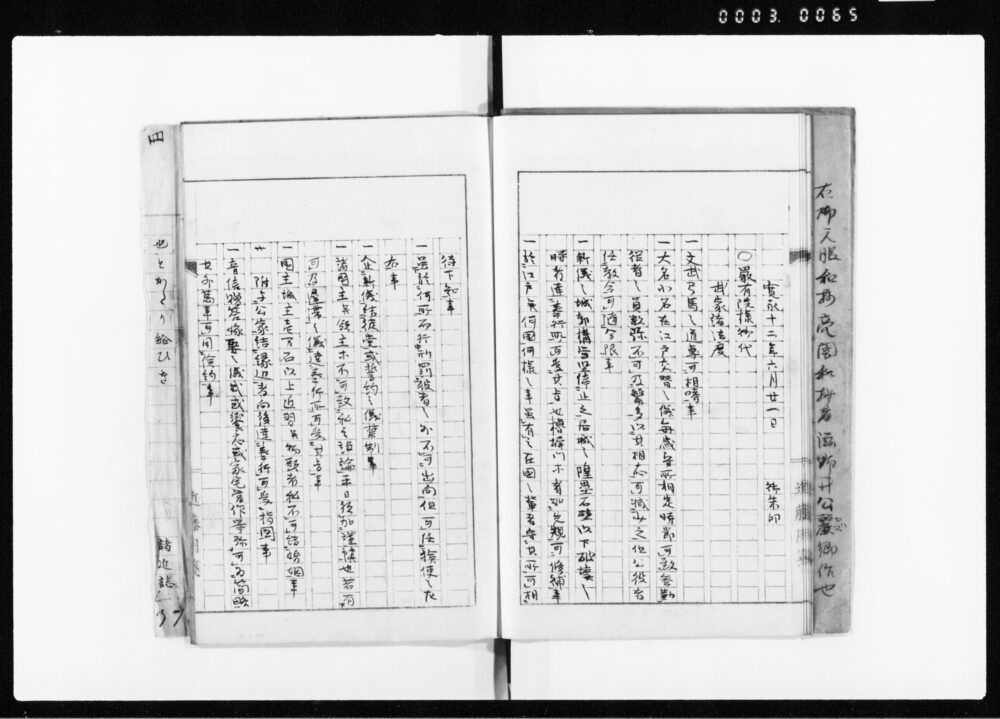 0003.0065
寛永十二年六月廿一日　御朱印
〇嚴有院様御代
武家諸法度
一文武弓馬ノ道專可相嗜事
一大名小名在江戸交替ノ儀毎歳守所相定時節可致參勤
從者ノ員數弥不可及繁多以其相應可減少之但公役者
任教令可隨分限事
一新儀ノ城郭構營堅停止之居城ノ隍塁石壁以下破壊ノ
時者達奉行所可受其旨也櫓塀門木者如先規可修補事
一於江戸并何国何様ノ事雖有之在国ノ輩者守其所可相
待下知事
一雖於何所而行刑罰役者ノ外不可出向但可任檢使ノ左
右事
一企新儀結徒党成誓約ノ儀禁制事
一諸国主并領主木不可致私之諍論平日須加謹慎也若有
可及遲滯ノ儀達奉行所可受其旨事
一国主城主壱万石以上近習并物頭者私不可結婚姻事
附与公家結縁辺者向後達奉行所可受指図事
一音信贈答嫁娶ノ儀式或饗応或家宅営作等弥可爲簡略
其外萬事可用儉約事
四
也とかくり給ひき
諸近誌
37